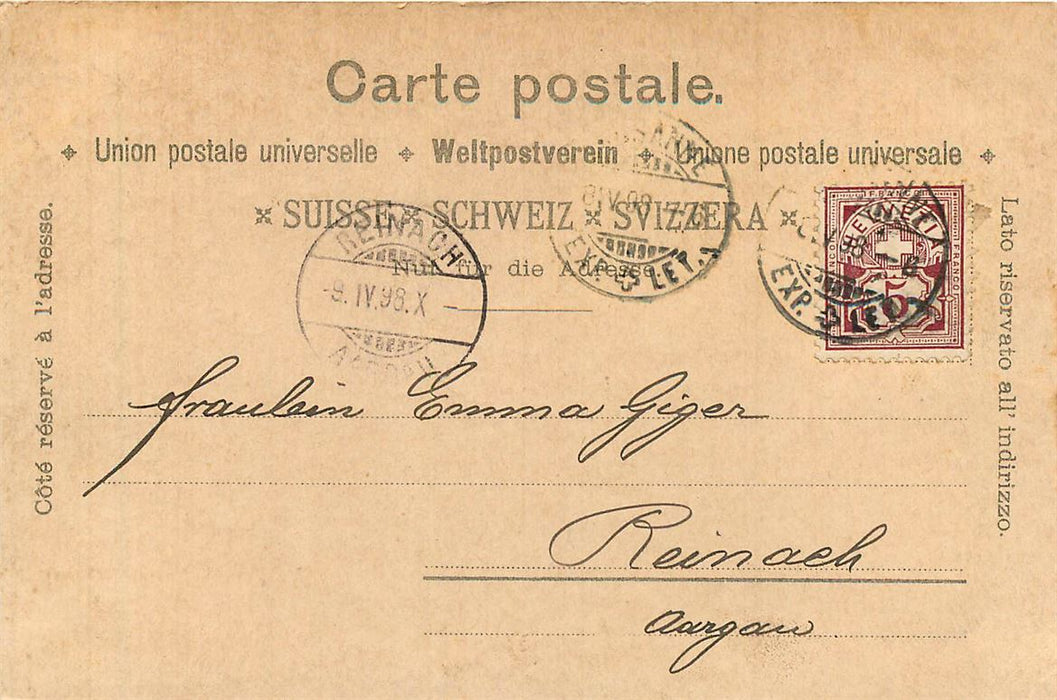 Carte postale.
Union postale universelle Weltpostverein Unione postale universale
SUISSE SCHWEIZ SVIZZERA
Nur für die Adresse.
Côté réservé à l'adresse.
Lato riservato all' indirizzo.
REINACH
-9.IV.98.X
AARGAU
EXP. LET.
FRANCO
HELVETIA
FRANCO
FRANCO
5
EXP. LET.
Fraulein Emma Giger
Reinach
Aargau